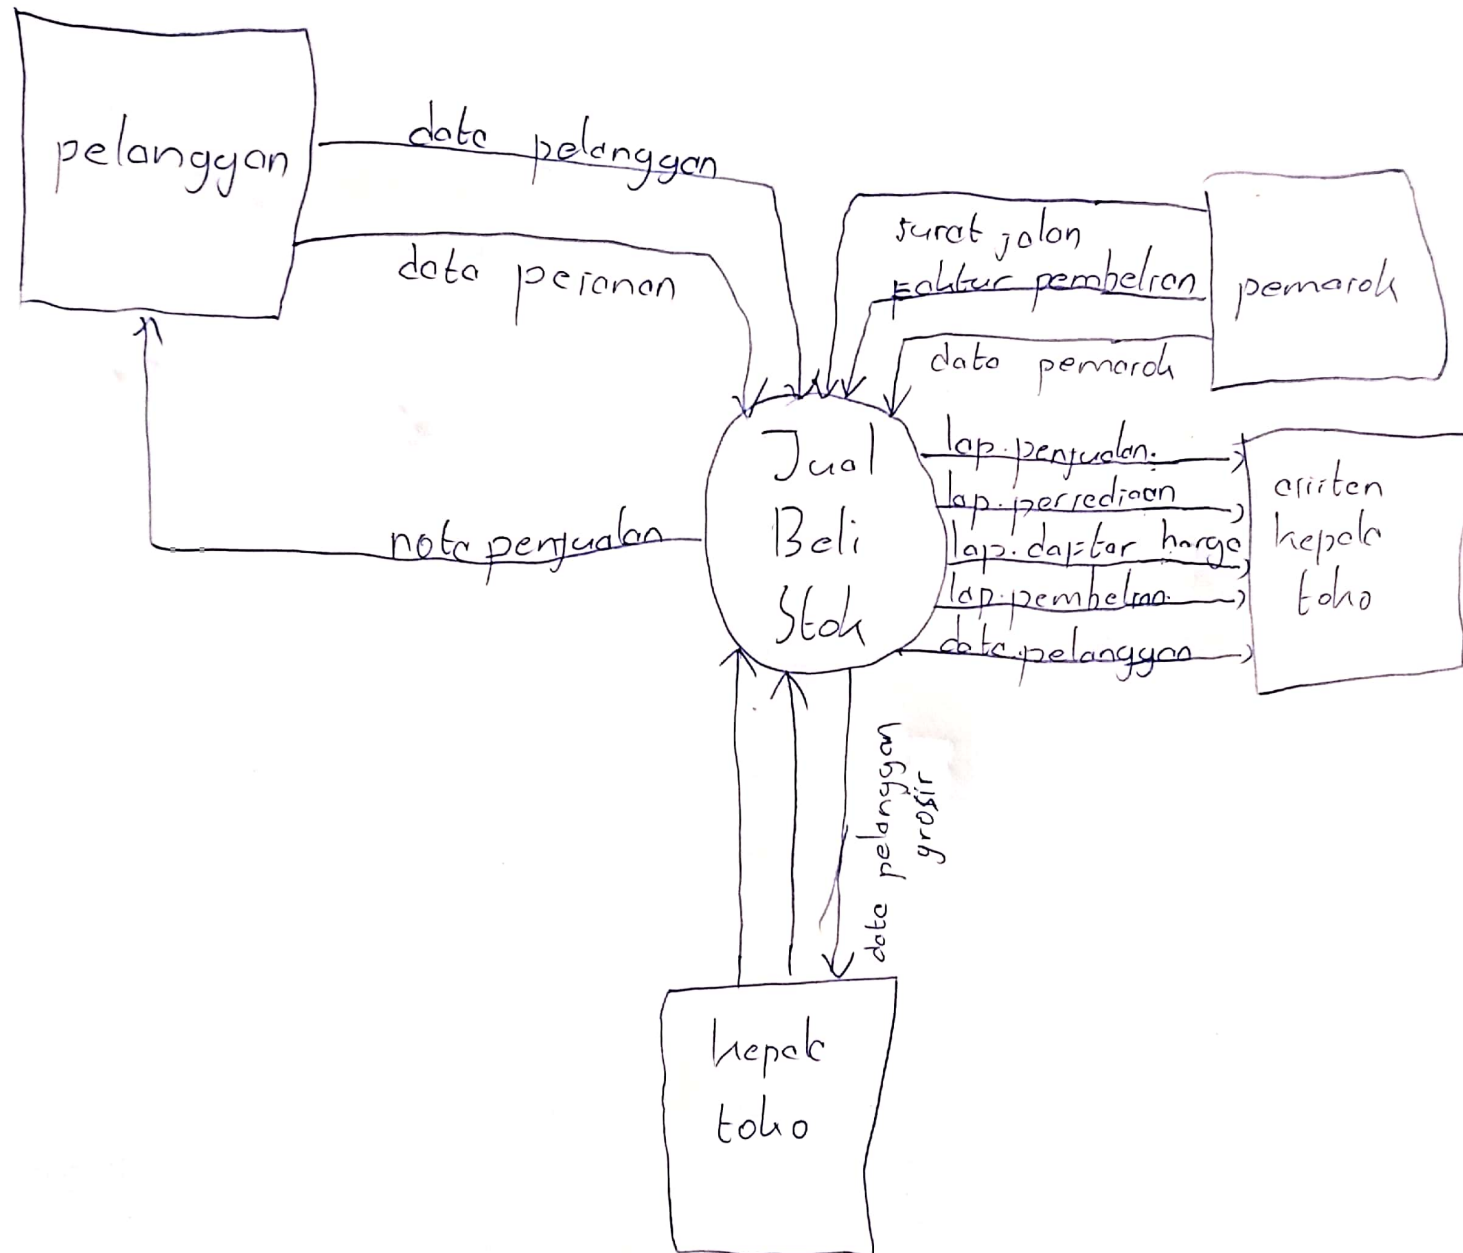 pelanggan
data pelanggan
data pesanan
surat jalan
faktur pembelian
data pemasok
pemasok
Jual
Beli
Stok
lap. penjualan.
lap. persediaan
lap. daftar harga
lap. pembelian.
data pelanggan
asisten
kepala
toko
nota penjualan
data pelanggan
grosir
kepala
toko